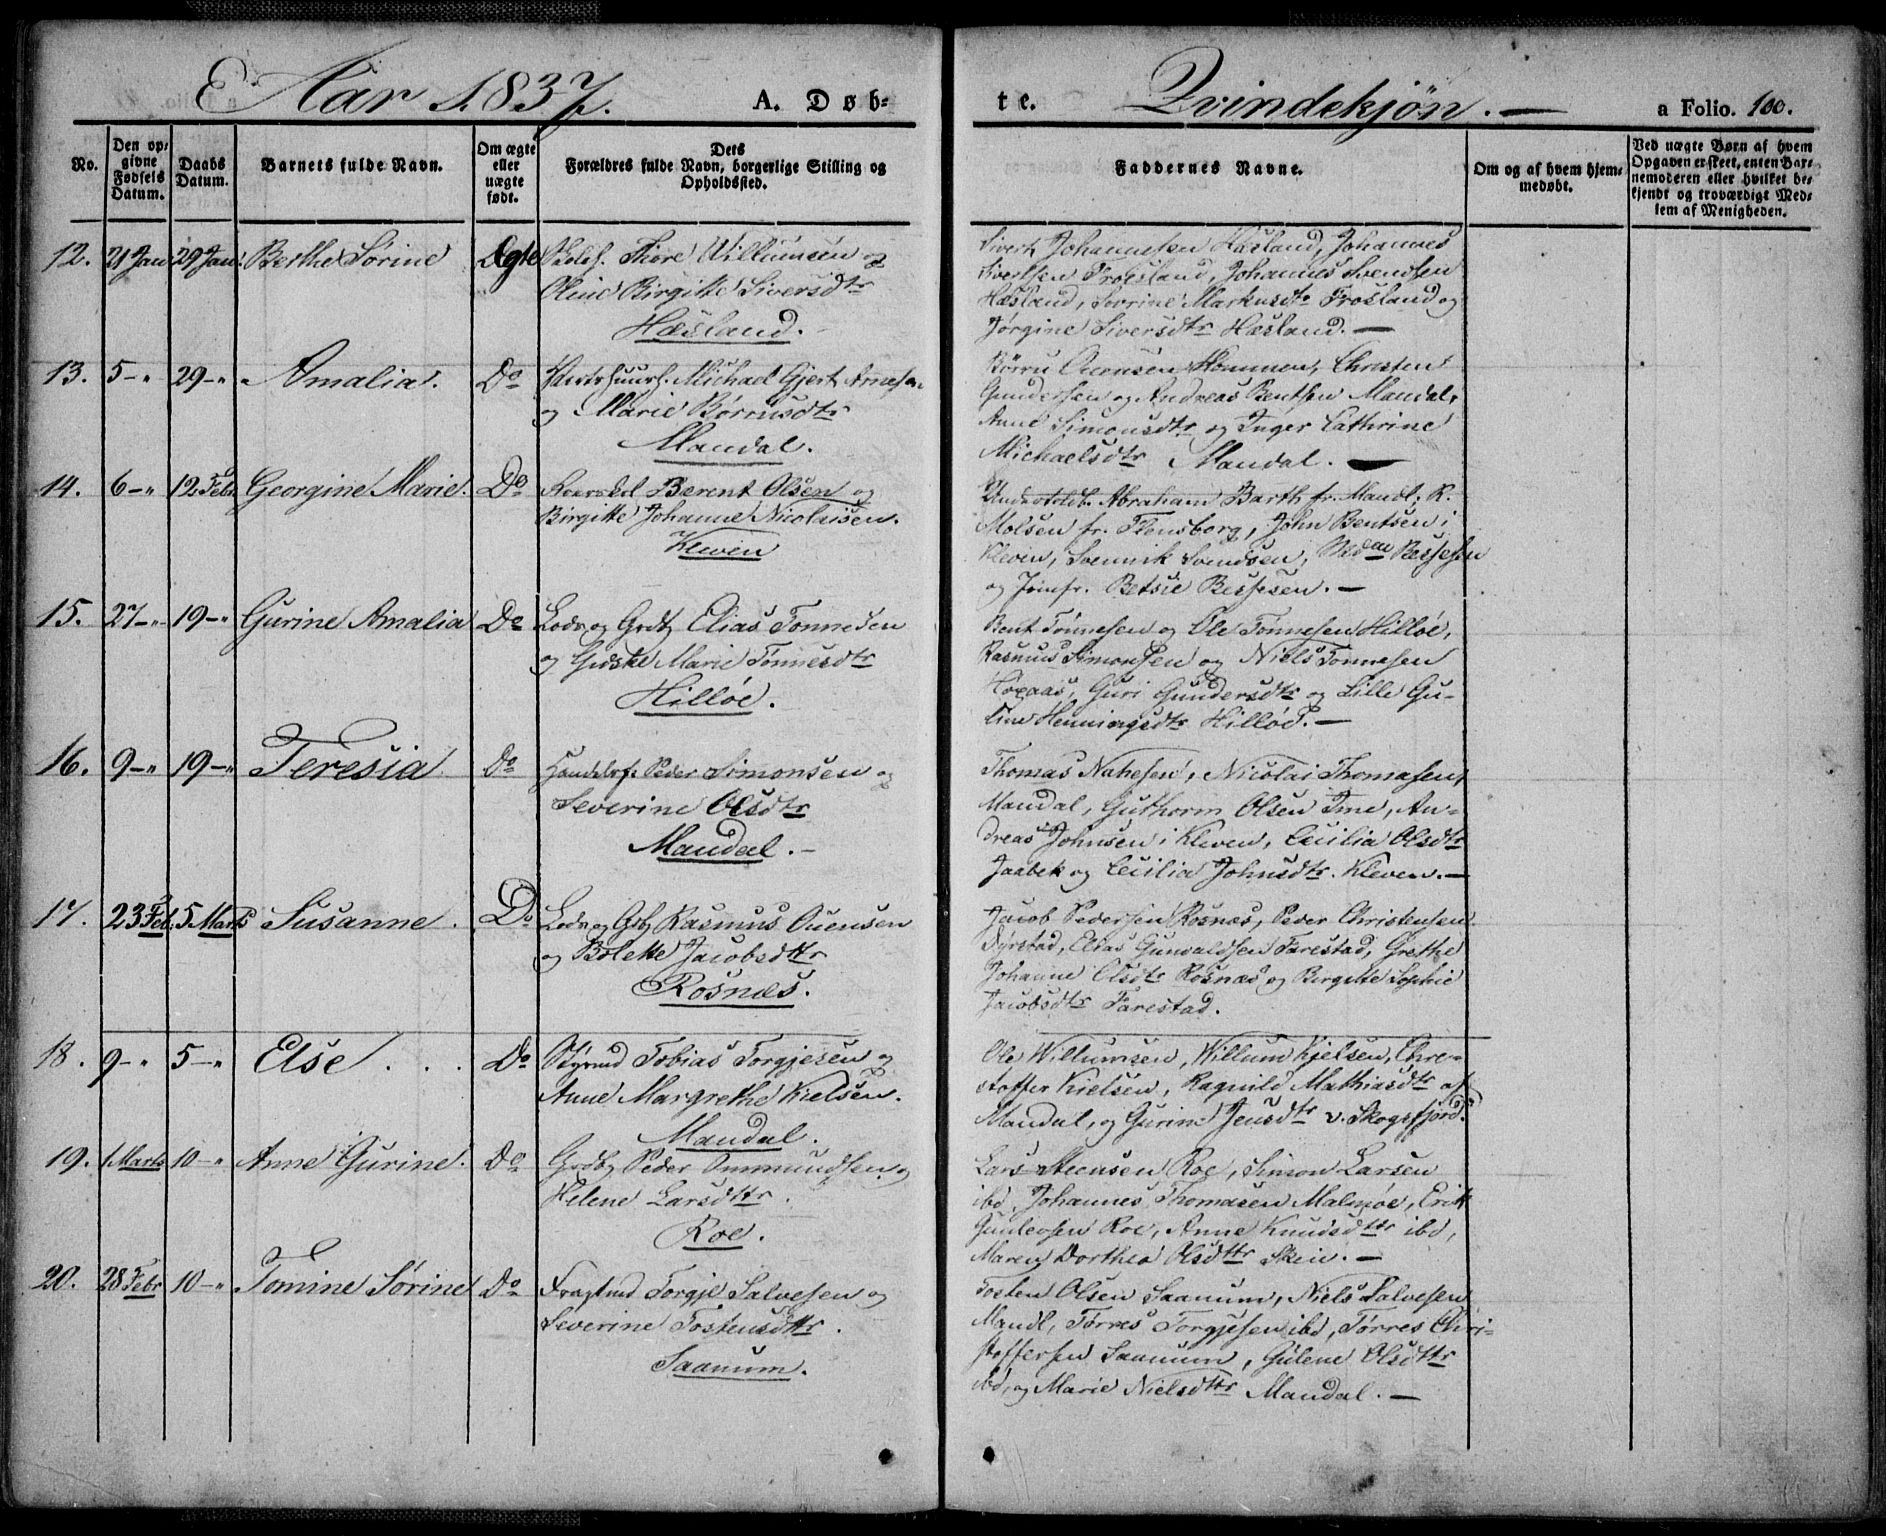 Aar 1837. A. Døb-
te. Qvindekjøn. — a Folio. 100.
No.
Den op-
givne
Fødsels
Datum.
Daabs
Datum.
Barnets fulde Navn.
Om ægte
eller
uægte
født.
Dets
Forældres fulde Navn, borgerlige Stilling og
Opholdssted.
Faddernes Navne.
Om og af hvem hjem-
medøbt.
Ved uægte Børn af hvem
Opgaven er skeet, enten Bar-
nemoderen eller hvilket be-
kjendt og troværdigt Med-
lem af Menigheden.
12. 21 Jan 29 Jan. Berthe Sørine Ægte Tiøre Willumsen og
Oline Birgitte Siversdtr
Hæsland.
Sivert Johannesen Hæsland, Johannes
Sivertsen Frøisland, Johannes Svendsen
Hæsland, Sørine Markusdtr Frosland og
Jørgine Siversdtr Hæsland. —
13. 5 — " 29 — " Amalia. Do Michael Gjert Arnesen
og Marie Børrusdtr
Mandal.
Børru Ouensen Hommen, Christen
Gundersen og Andreas Bentsen Mandal,
Anne Simonsdtr og Inger Cathrine
Michaelsdtr Mandal. —
14. 6 — " 12 Febr Georgine Marie. Do Bærent Olsen og
Birgitte Johanne Nicolaisen.
Kleven
Abraham Barth fr. Mandl, R.
Molsen fr. Flensborg, John Bentsen i
Kleven, Svennik Svendsen, Mdme Bessesen
og Jomfr. Betsie Bessesen. —
15. 27 — " 19 — " Gurine Amalia Do Lods og Grdb Elias Tønnesen
og Gidske Marie Tønnesdtr
Hilløe.
Bent Tønnesen og Ole Tønnesen Hilløe,
Rasmus Simonsen og Niels Tønnesen
Guri Gundersdtr og Lille Gu-
rine Henningsdtr Hilløe. —
16. 9 — " 19 — " Teresia Do Handelsf. Peder Simonsen og
Severine Olsdtr
Mandal. —
Thomas Nahesen, Nicolai Thomasen,
Mandal, Guthorm Olsen Ime, An-
dreas Johnsen i Kleven, Cecilia Olsdtr
Jaabek og Cecilia Johnsdtr. Kleven. —
17. 23 Feb. 5 Marts Susanne. Do Lods og Grdb Rasmus Ouensen
og Bolette Jacobsdttr
Rosnæs.
Jacob Pedersen Rosnæs, Peder Christensen
Dyrstad, Elias Gunvaldsen Farestad, Grethe
Johanne Olsdtr Rosnæs og Birgitte Sophie
Jacobsdtr Farestad.
18. 9 — " 5 — " Else . . . Do Styrmd Tobias Torgjesen og
Anne Margrethe Kielsen.
Mandal.
Ole Willumsen, Willum Kjelsen, Chri-
stoffer Kielsen, Ragnild Mathiasdtr af
Mandal, og Gurine Jensdtr v. Skogsfjord.
19. 1 Marts 10 — " Anne Gurine. Do Grdb Peder Ommundsen og
Helene Larsdttr.
Roe.
Lars Steensen Roe, Simon Larsen
ibd, Johannes Thomasen Malmøe, Erik
Gunleosen Roe, Anne Knudsdttr ibd,
Maren Dorthea Olsdttr Skein. —
20. 28 Febr 10 — " Tomine Sørine Do Fragtmd Torgje Salvesen og
Severine Tostensdttr.
Saanum.
Tosten Olsen Saanum, Niels Salvesen
Mandl, Tørres Torgjesen ibd, Tørres Chri-
stoffersen Saanum, Gulene Olsdttr
ibd, og Marie Nielsdttr Mandal. —